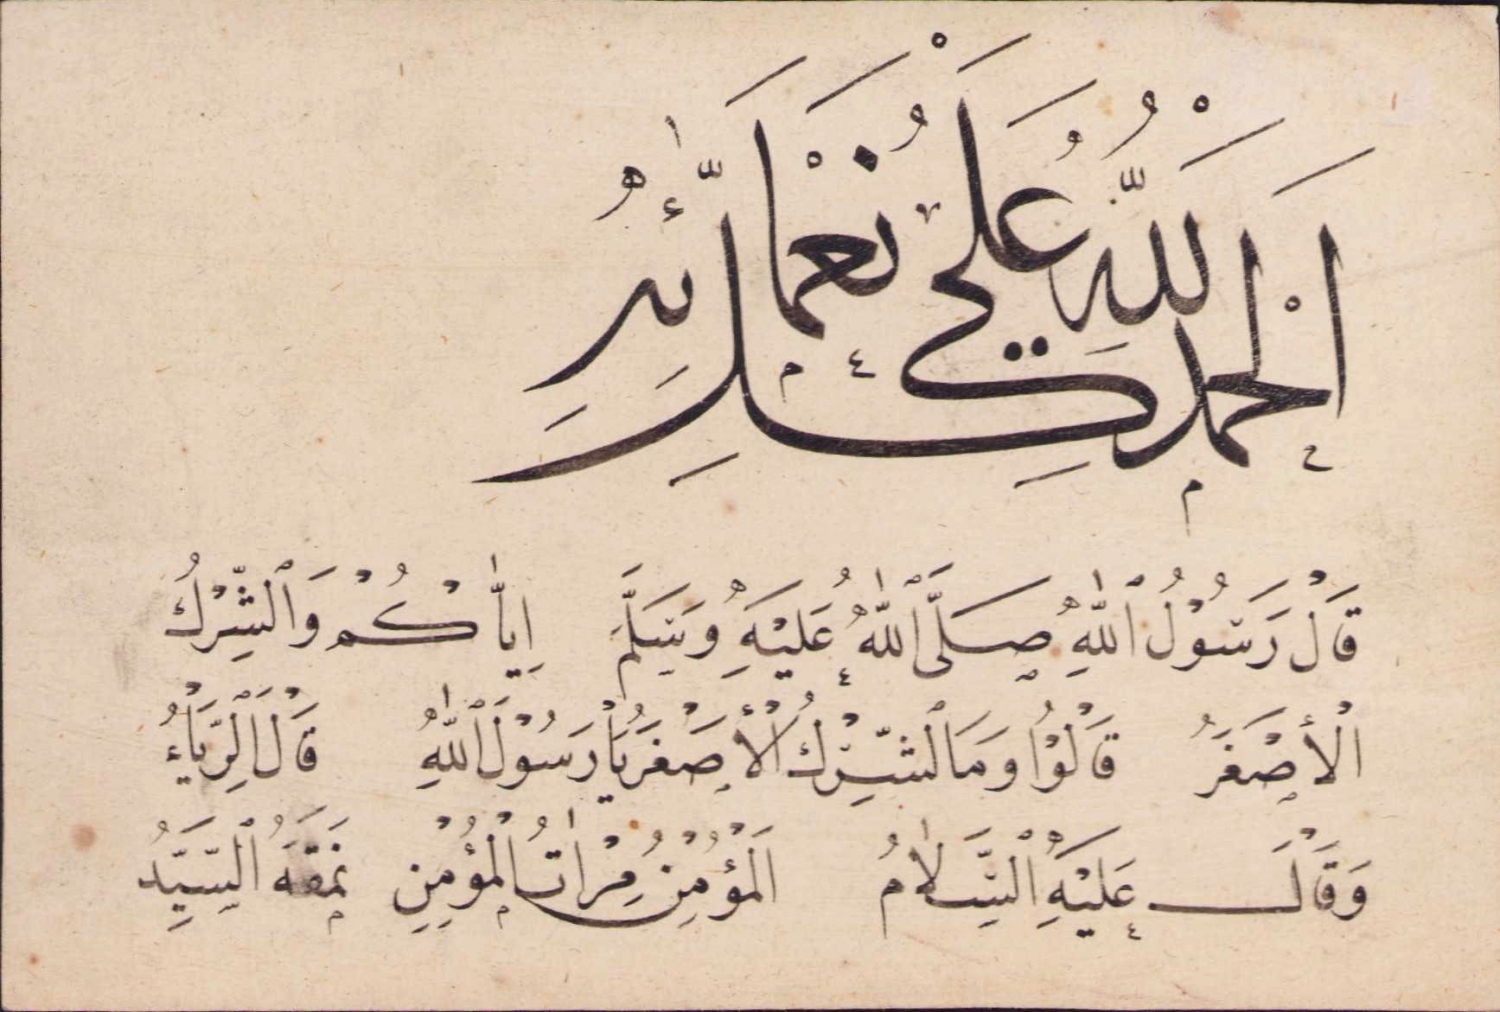 اَلْحَمْدُ لِلّٰهِ عَلٰى نُعَمَائِهِ
قَالْ رَسُوْلُ اللّٰهِ صَلَّى اللّٰهُ عَلَيْهِ وَسَلَّمَ اِيَّاكُمْ وَالشِّرْكُ
الْأَصْغَرُ قَالْوُا وَمَا الشِّرْكُ الْأَصْغَرُ يَا رَسُوْلَ اللّٰهِ قَالَ الرِّيَاءُ
وَقَالَ عَلَيْهِ السَّلَامُ اَلْمُؤْمِنُ مِرْاٰتُ الْمُؤْمِنِ نَمَقَهُ السَّيِّدُ